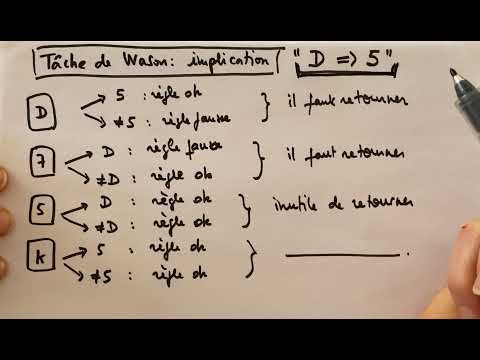 Tâche de Wason: implication "D => 5"
D 5 : règle ok
≠5 : règle fausse
} il faut retourner
7 D : règle fausse
≠D : règle ok
} il faut retourner
5 D : règle ok
≠D : règle ok
} inutile de retourner
K 5 : règle ok
≠5 : règle ok
} ________ .